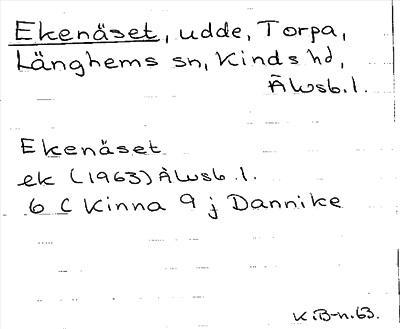 Ekenäset, udde, Torpa,
Länghems sn, Kinds hd,
Älvsb. l.
Ekenäset
ek (1963) Älvsb. l.
6 C Kinna 9 j Dannike
K.B-n. 63.